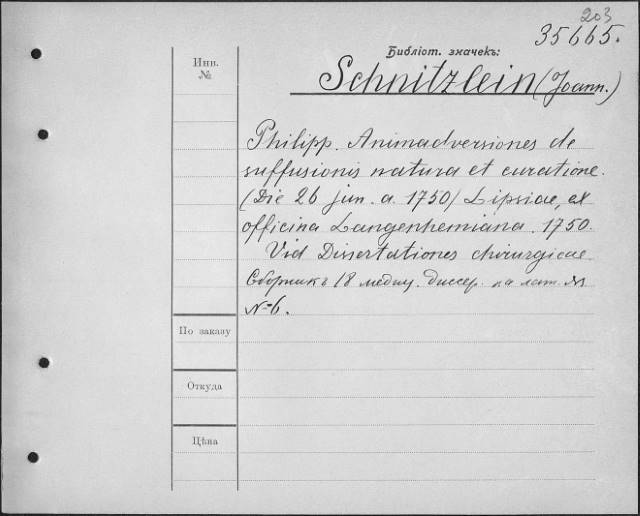 203
35665.
Библіот. значекъ:
Инв.
№
Schnitzlein (Joann.)
Philipp. Animadversiones de
suffusionis natura et curatione.
(Die 26 jun. a. 1750) Lipsiae, ex
officina Langenhemiana 1750.
Vid Dissertationes chirurgicae
Сборникъ 18 медиц. диссер. на лат. яз
№ 6.
По заказу
Откуда
Цѣна